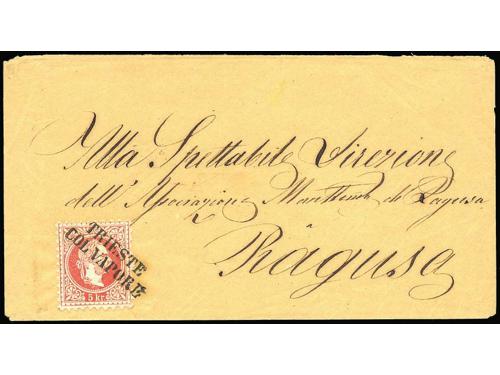 Alla Spettabile Direzione
dell' Associazione Marittima di Ragusa
Ragusa
TRIESTE
COL VAPORE
5 kr.